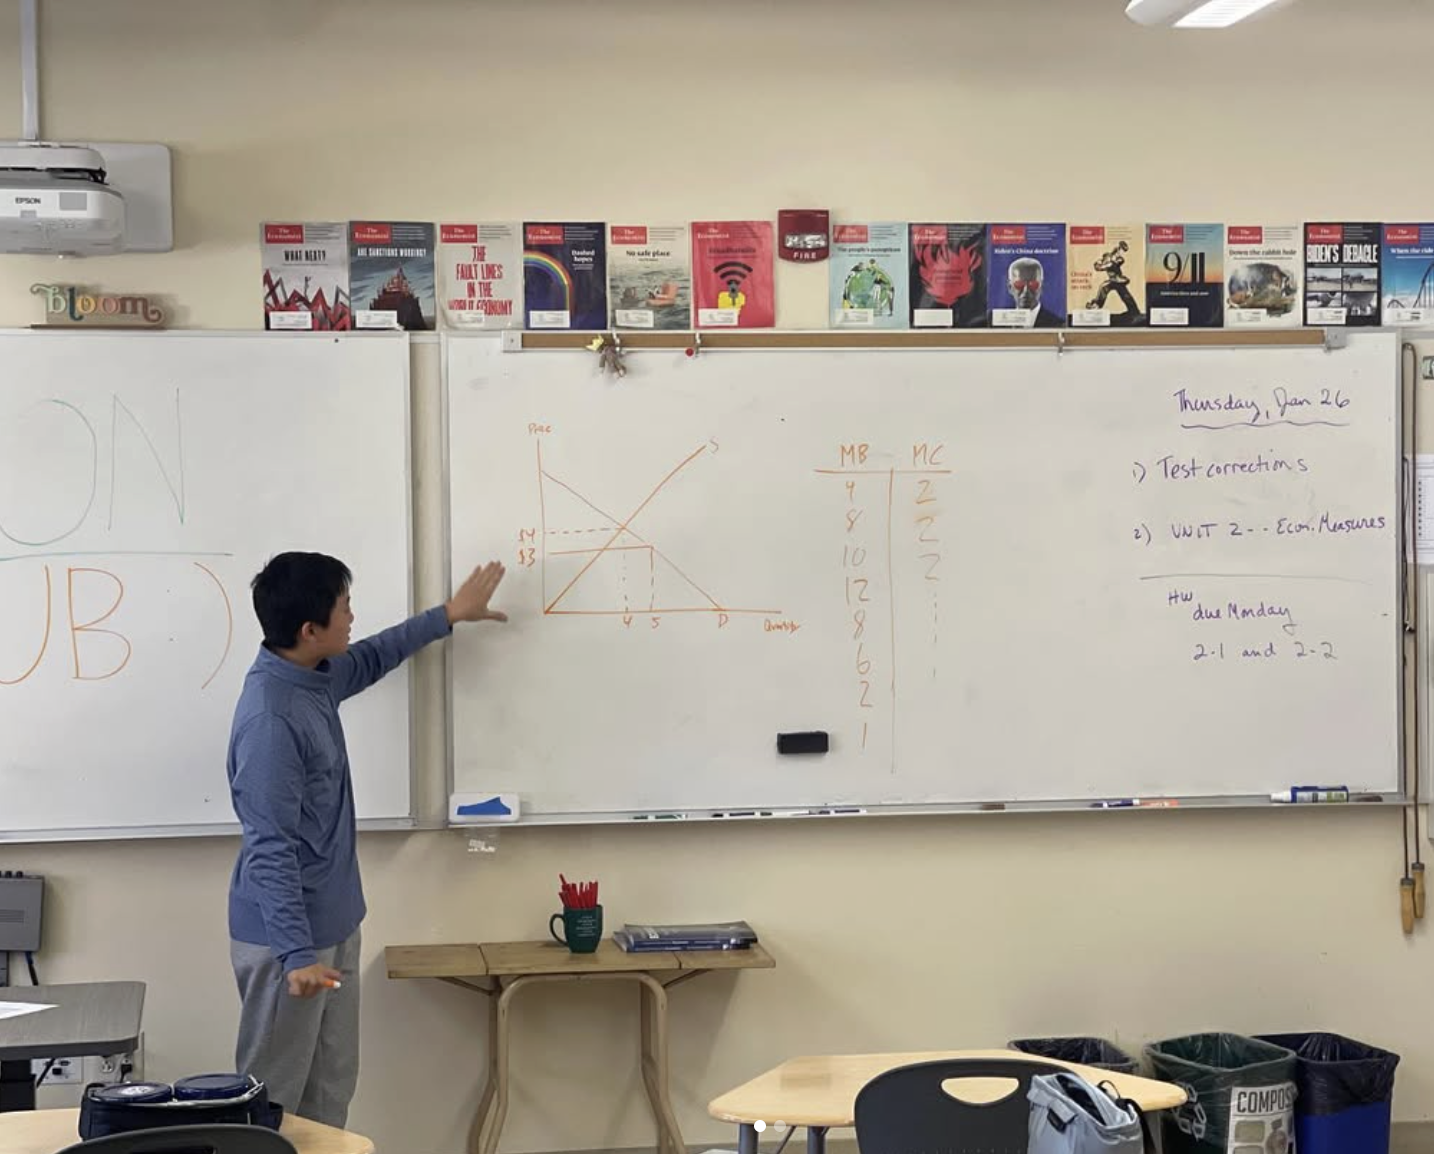 EPSON
bloom
The Economist
WHAT NEXT?
The Economist
ARE SANCTIONS WORKING?
The Economist
THE
FAULT LINES
IN THE
WORLD ECONOMY
The Economist
Dashed
hopes
The Economist
No safe place
The Economist
FIRE
The Economist
The people's panopticon
The Economist
The Economist
Biden's China doctrine
The Economist
China's
attack
on tech
The Economist
9/11
The Economist
Down the rabbit hole
The Economist
BIDEN'S DEBACLE
The Economist
When the ride
ON
UB :)
Price
S
$4
$3
4 5 D Quantity
MB MC
4 2
8 2
10 2
12
8
6
2
1
Thursday, Jan 26
1) Test corrections
2) UNIT 2 -- Econ. Measures
HW
due Monday
2.1 and 2-2
COMPOS